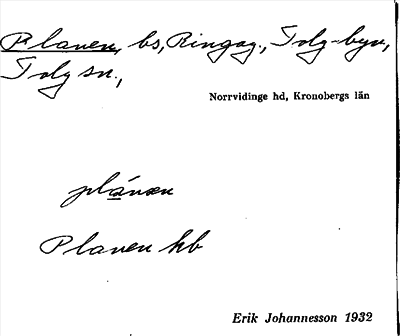 Planen, bs, Ringag., Tolg-byn,
Tolg sn.,
Norrvidinge hd, Kronobergs län
plánæn
Planen hb
Erik Johannesson 1932